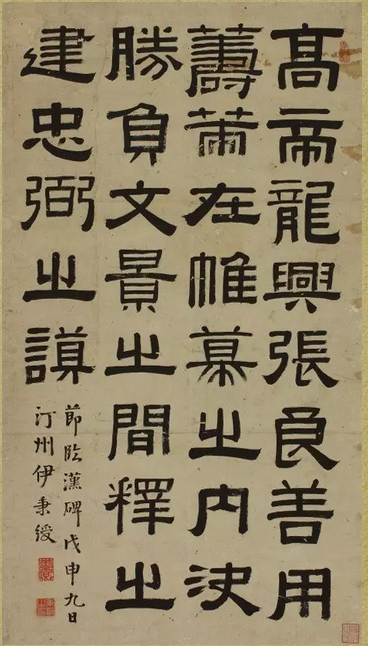 髙帝龍興張良善用
籌策在帷幕之内決
勝負文景之間釋之
建忠弼之謨
節臨漢碑戊申九日
汀州伊秉綬